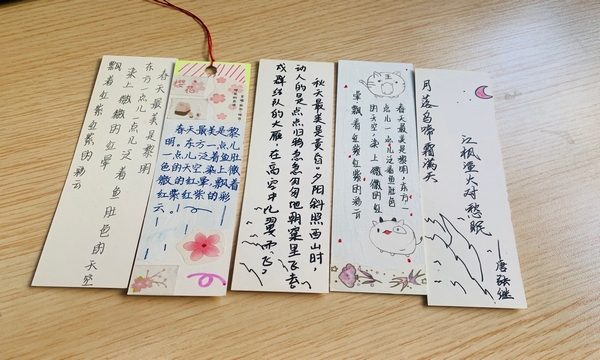 春天最美是黎明
东方一点儿一点儿泛着鱼肚色的天空
染上微微的红晕
飘着红紫红紫的彩云
春天最美是黎
明。东方一点儿
一点儿泛着鱼肚
色的天空,染上微
微的红晕,飘着
红紫红紫的彩
云。
秋天最美是黄昏。夕阳斜照西山时,
动人的是点点归鸦急急匆匆地朝窠里飞去。
成群结队的大雁,在高空中比翼而飞。
春天最美是黎明。东方一
点儿一点儿泛着鱼肚色
的天空,染上微微的红
晕飘着红紫红紫的彩云
月落乌啼霜满天
江枫渔火对愁眠
——唐张继